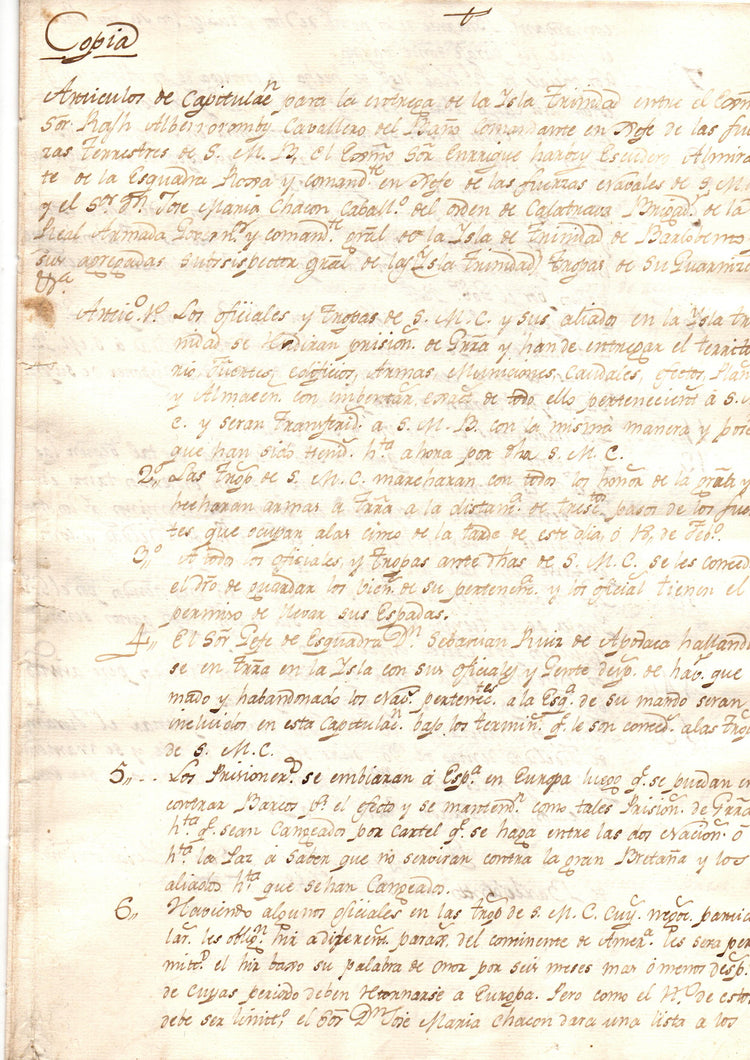 Copia
Articulos de Capitulaⁿ para la entrega de la Isla Trinidad entre el Exm̃o
Sōr Ralph Albercoromby Cavallero del Baño Comandante en Xefe de las fuer
zas Terrestres de S. M. B, El Exm̃o Sōr Enrrique harvey Escudero Almiran
te de la Esquadra Roxa y comand.ᵗᵉ en Xefe de las fuerzas Navales de S. M.
y el S.ᵒʳ Dⁿ Jose Maria Chacon Caball.ᵒ del orden de Calatrava Brigad.ʳ de la
Real Armada Governʳ. y comand.ᵗᵉ gral de la Isla de Trinidad de Barlobento
sus agregadas subinspector gral de las Isla Trinidad, tropas de su Guarnizo
&ª.
Artic.º 1º. Los oficiales y tropas de S. M. C. y sus aliados en la Isla tri
nidad se Rendiran prision. de Grra y han de entregar el territo
rio, Fuertes, edificios, Armas, Municiones, Caudales, efectos, Plan
y Almacen. con imbentar. exact. de todo ello pertenecient. á S. M.
C. y seran transferid. a S. M. B con la misma manera y pose
que han sido tenid. hᵗª ahora por dha S. M. C.
2º,, Las trop. de S. M. C. marcharan con todos los honor. de la grra y
hecharan armas a trra a la distanᵃ. de tresc.ᵗᵒˢ pasos de los fuer
tes, que ocupan alas cinco de la tarde de este dia, ó 18, de Febº.
3,,º A todos los oficiales, y tropas ante dhas de S. M. C. se les conced
el dro de guardar los bien.ˢ de su pertenenc. y los oficial. tienen el
permiso de llevar sus Espadas.
4,, El Sōr Gefe de Esquadra Dⁿ. Sebastian Ruiz de Apodaca halland
se en trra en la Isla con sus oficiales y Gente desp. de hab.ʳ que
mado y habandonado los Nav. pertenec.ᵗᵉˢ a la Esqª. de su mando seran
incluidos en esta Capitulaⁿ. bajo los termin. q.ᵉ le son conced. a las trop
de S. M. C.
5,, .. Los Prisioner.ˢ se embiaran á Espª. en Europa luego q.ᵉ se puedan en
contrar Barcos p.ª el efecto y se mantendⁿ. como tales Prision. de Grra
hᵗª q.ᵉ sean Cangeados por cartel q.ᵉ se haga entre las dos Nacion. ó
hᵗª la Paz á Saber que no serviran contra la gran Bretaña y los
aliados hᵗª que sehan Cangeados.
6,, Haviendo algunos oficiales en las trop. de S. M. C. cuy. negoc. partic
lar. les oblig.ⁿ hir a diferent. parag. del continente de Amer.ª les sera per
mit.ᵒ el hir baxo su palabra de onor por seis meses mas ó menos desp.
de cuyas periodo deben Retornarse a Europa. Pero como el Nº. de estos
debe ser limit.º, el Sōr Dⁿ Jose Maria Chacon dara una lista a los